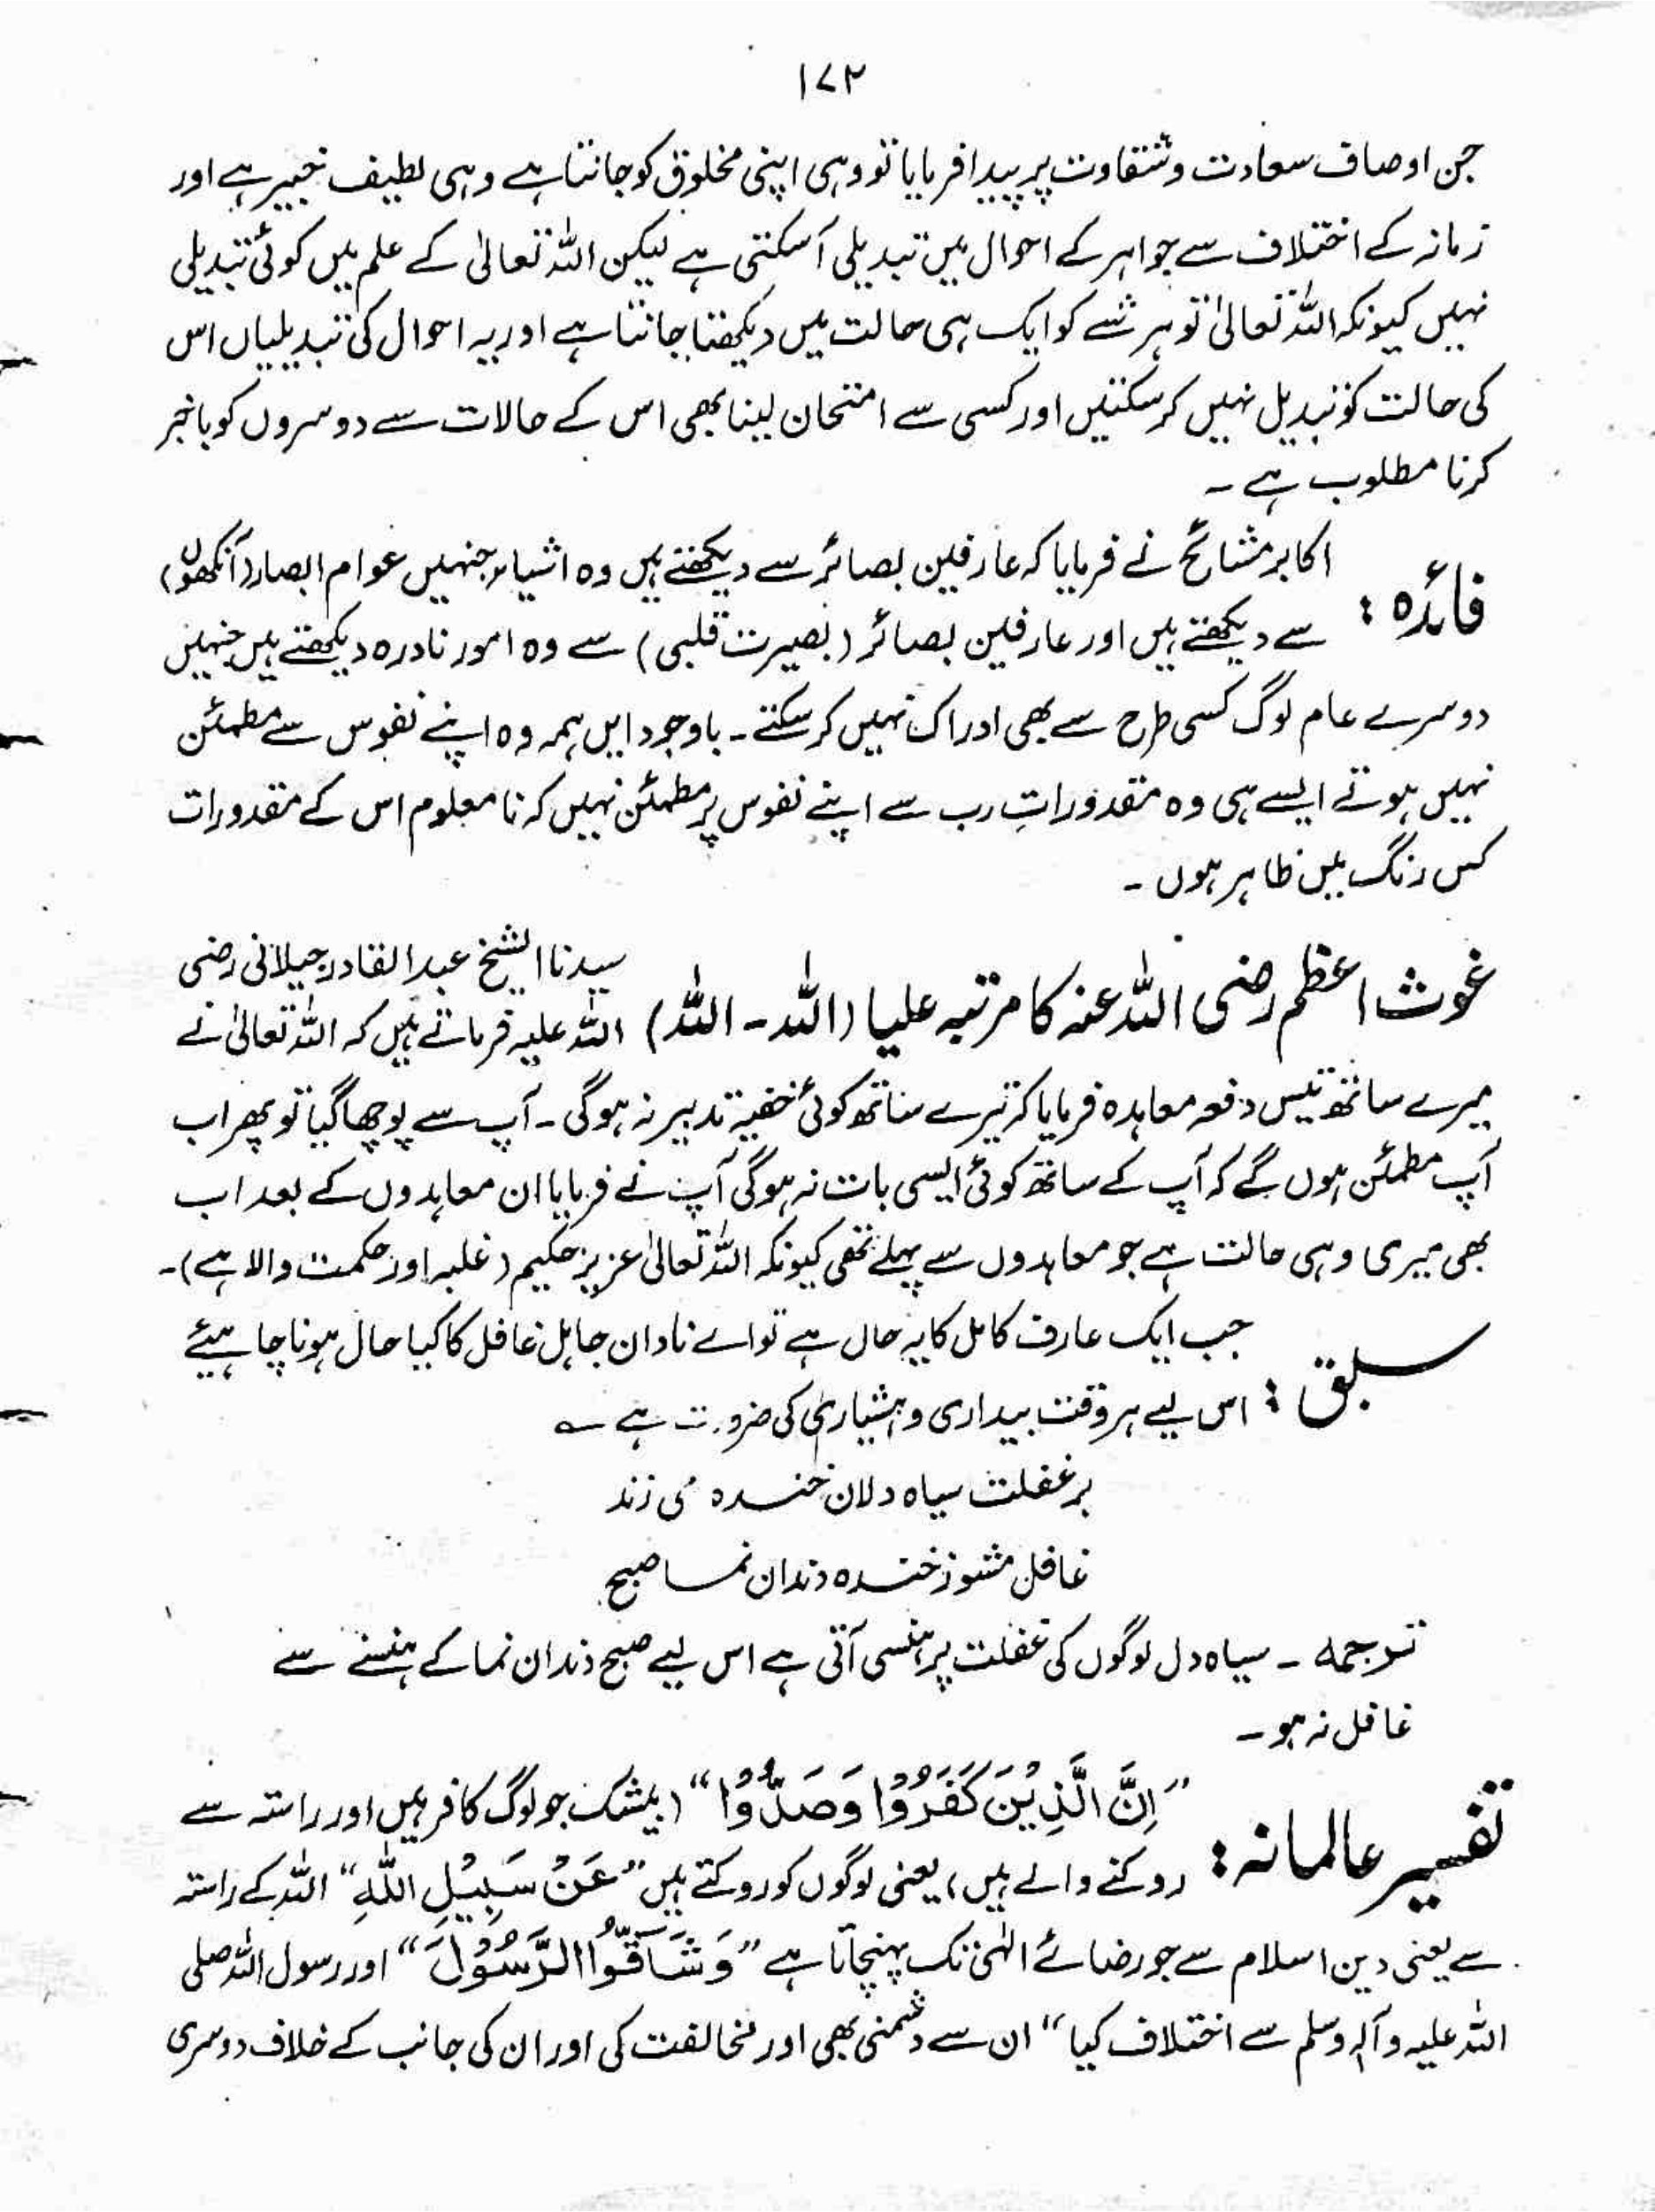 ۱۷۲
جن اوصاف سعادت و شقاوت پر پیدا فرمایا تو وہی اپنی مخلوق کو جانتا ہے وہی لطیف خبیر ہے اور
زمانہ کے اختلاف سے جواہر کے احوال میں تبدیلی آسکتی ہے لیکن اللہ تعالیٰ کے علم میں کوئی تبدیلی
نہیں کیونکہ اللہ تعالیٰ تو ہر شے کو ایک ہی حالت میں دیکھتا جانتا ہے اور یہ احوال کی تبدیلیاں اس
کی حالت کو تبدیل نہیں کرسکتیں اور کسی سے امتحان لینا بھی اس کے حالات سے دوسروں کو باخبر
کرنا مطلوب ہے ۔
فائدہ : اکابر مشائخ نے فرمایا کہ عارفین بصائر سے دیکھتے ہیں وہ اشیاء جنہیں عوام ابصار (آنکھوں)
سے دیکھتے ہیں اور عارفین بصائر (بصیرت قلبی) سے وہ امور نادرہ دیکھتے ہیں جنہیں
دوسرے عام لوگ کسی طرح سے بھی ادراک نہیں کرسکتے ۔ باوجود ایں ہمہ وہ اپنے نفوس سے مطمئن
نہیں ہوتے ایسے ہی وہ مقدوراتِ رب سے اپنے نفوس پر مطمئن نہیں کہ نا معلوم اس کے مقدورات
کس رنگ میں ظاہر ہوں ۔
غوث اعظم رضی اللہ عنہ کا مرتبہ علیا (اللہ ۔ اللہ) سیدنا الشیخ عبدالقادر جیلانی رضی
اللہ علیہ فرماتے ہیں کہ اللہ تعالیٰ نے
میرے ساتھ تیس دفعہ معاہدہ فرمایا کہ تیرے ساتھ کوئی خفیہ تدبیر نہ ہوگی ۔ آپ سے پوچھا گیا تو پھر اب
آپ مطمئن ہوں گے کہ آپ کے ساتھ کوئی ایسی بات نہ ہوگی آپ نے فرمایا ان معاہدوں کے بعد اب
بھی میری وہی حالت ہے جو معاہدوں سے پہلے تھی کیونکہ اللہ تعالیٰ عزیز حکیم (غلبہ اور حکمت والا ہے)۔
سبق : جب ایک عارف کامل کا یہ حال ہے تو اے نادان جاہل غافل کا کیا حال ہونا چاہیئے
اس لیے ہر وقت بیداری و ہشیاری کی ضرورت ہے ؎
بر غفلت سیاہ دلان خندہ می زند
غافل مشو ز خندہ دندان نما صبح
ترجمہ ۔ سیاہ دل لوگوں کی غفلت پر ہنسی آتی ہے اس لیے صبح دندان نما کے ہنسنے سے
غافل نہ ہو ۔
تفسیر عالمانہ : ”اِنَّ الَّذِیْنَ کَفَرُوْا وَصَدُّوْا“ (بیشک جو لوگ کافر ہیں اور راستہ سے
روکنے والے ہیں) یعنی لوگوں کو روکتے ہیں ”عَنْ سَبِیْلِ اللّٰہِ“ اللہ کے راستہ
سے یعنی دین اسلام سے جو رضائے الٰہی تک پہنچاتا ہے ”وَشَآقُّوا الرَّسُوْلَ“ اور رسول اللہ صلی
اللہ علیہ وآلہ وسلم سے اختلاف کیا“ ان سے دشمنی بھی اور مخالفت کی اور ان کی جانب کے خلاف دوسری